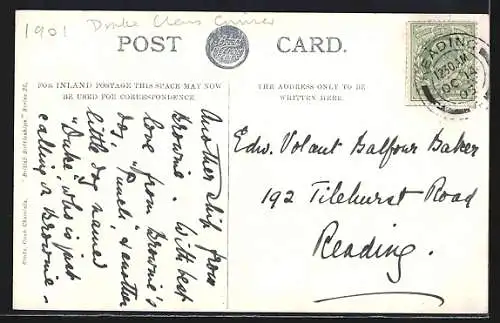 1901 Drake Class Cruiser
POST CARD.
FOR INLAND POSTAGE THIS SPACE MAY NOW
BE USED FOR CORRESPONDENCE.
THE ADDRESS ONLY TO BE
WRITTEN HERE.
READING
12.30AM
OC 14
Another ship from
Brownie. With best
love from Brownie's
dog, "Punch", & another
little dog named
"Duke", who is just
calling on Brownie.
Edw. Volant Balfour Baker
192 Tilehurst Road
Reading.
"British Battleships" Series